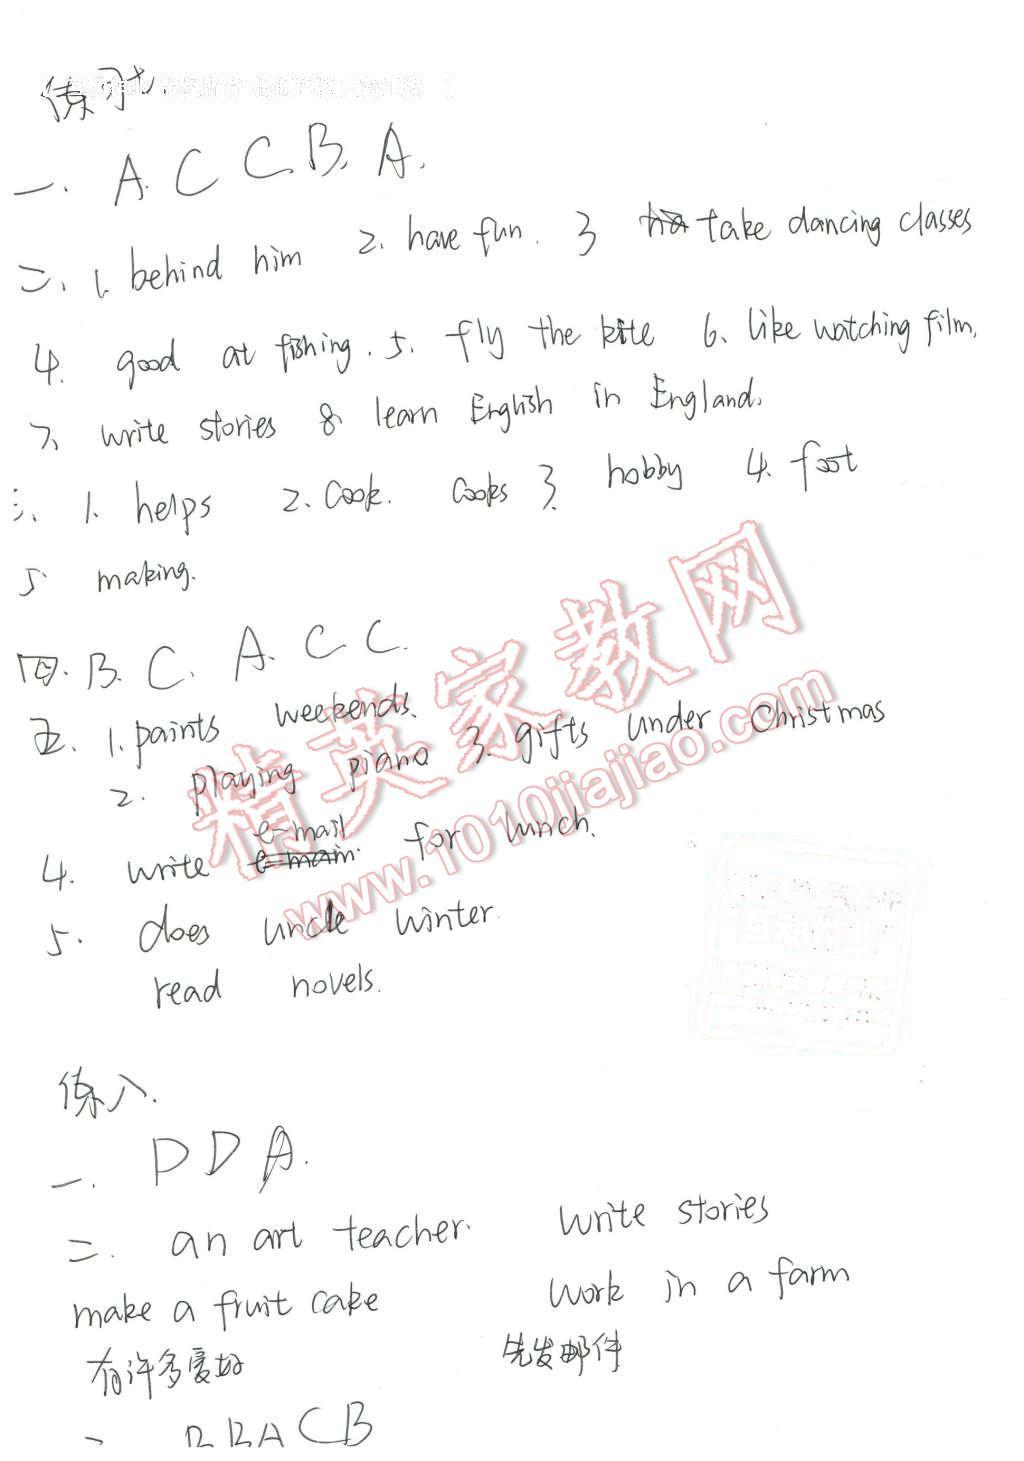 练习七
一. A. C C B. A.
二. 1. behind him 2. have fun. 3 take dancing classes
4. good at fishing. 5. fly the kite 6. like watching film.
7. write stories 8 learn English in England.
三. 1. helps 2. cook. cooks 3. hobby 4. foot
5 making.
四. B. C. A. C C.
五. 1. paints weekends.
2. playing piano 3. gifts under Christmas
4. write e-mail for lunch.
5. does uncle winter.
read novels.
练八.
一. D D A.
二. an art teacher. write stories
make a fruit cake work in a farm
有许多爱好 先发邮件
B B A C B
精英家教网
www.1010jiajiao.com